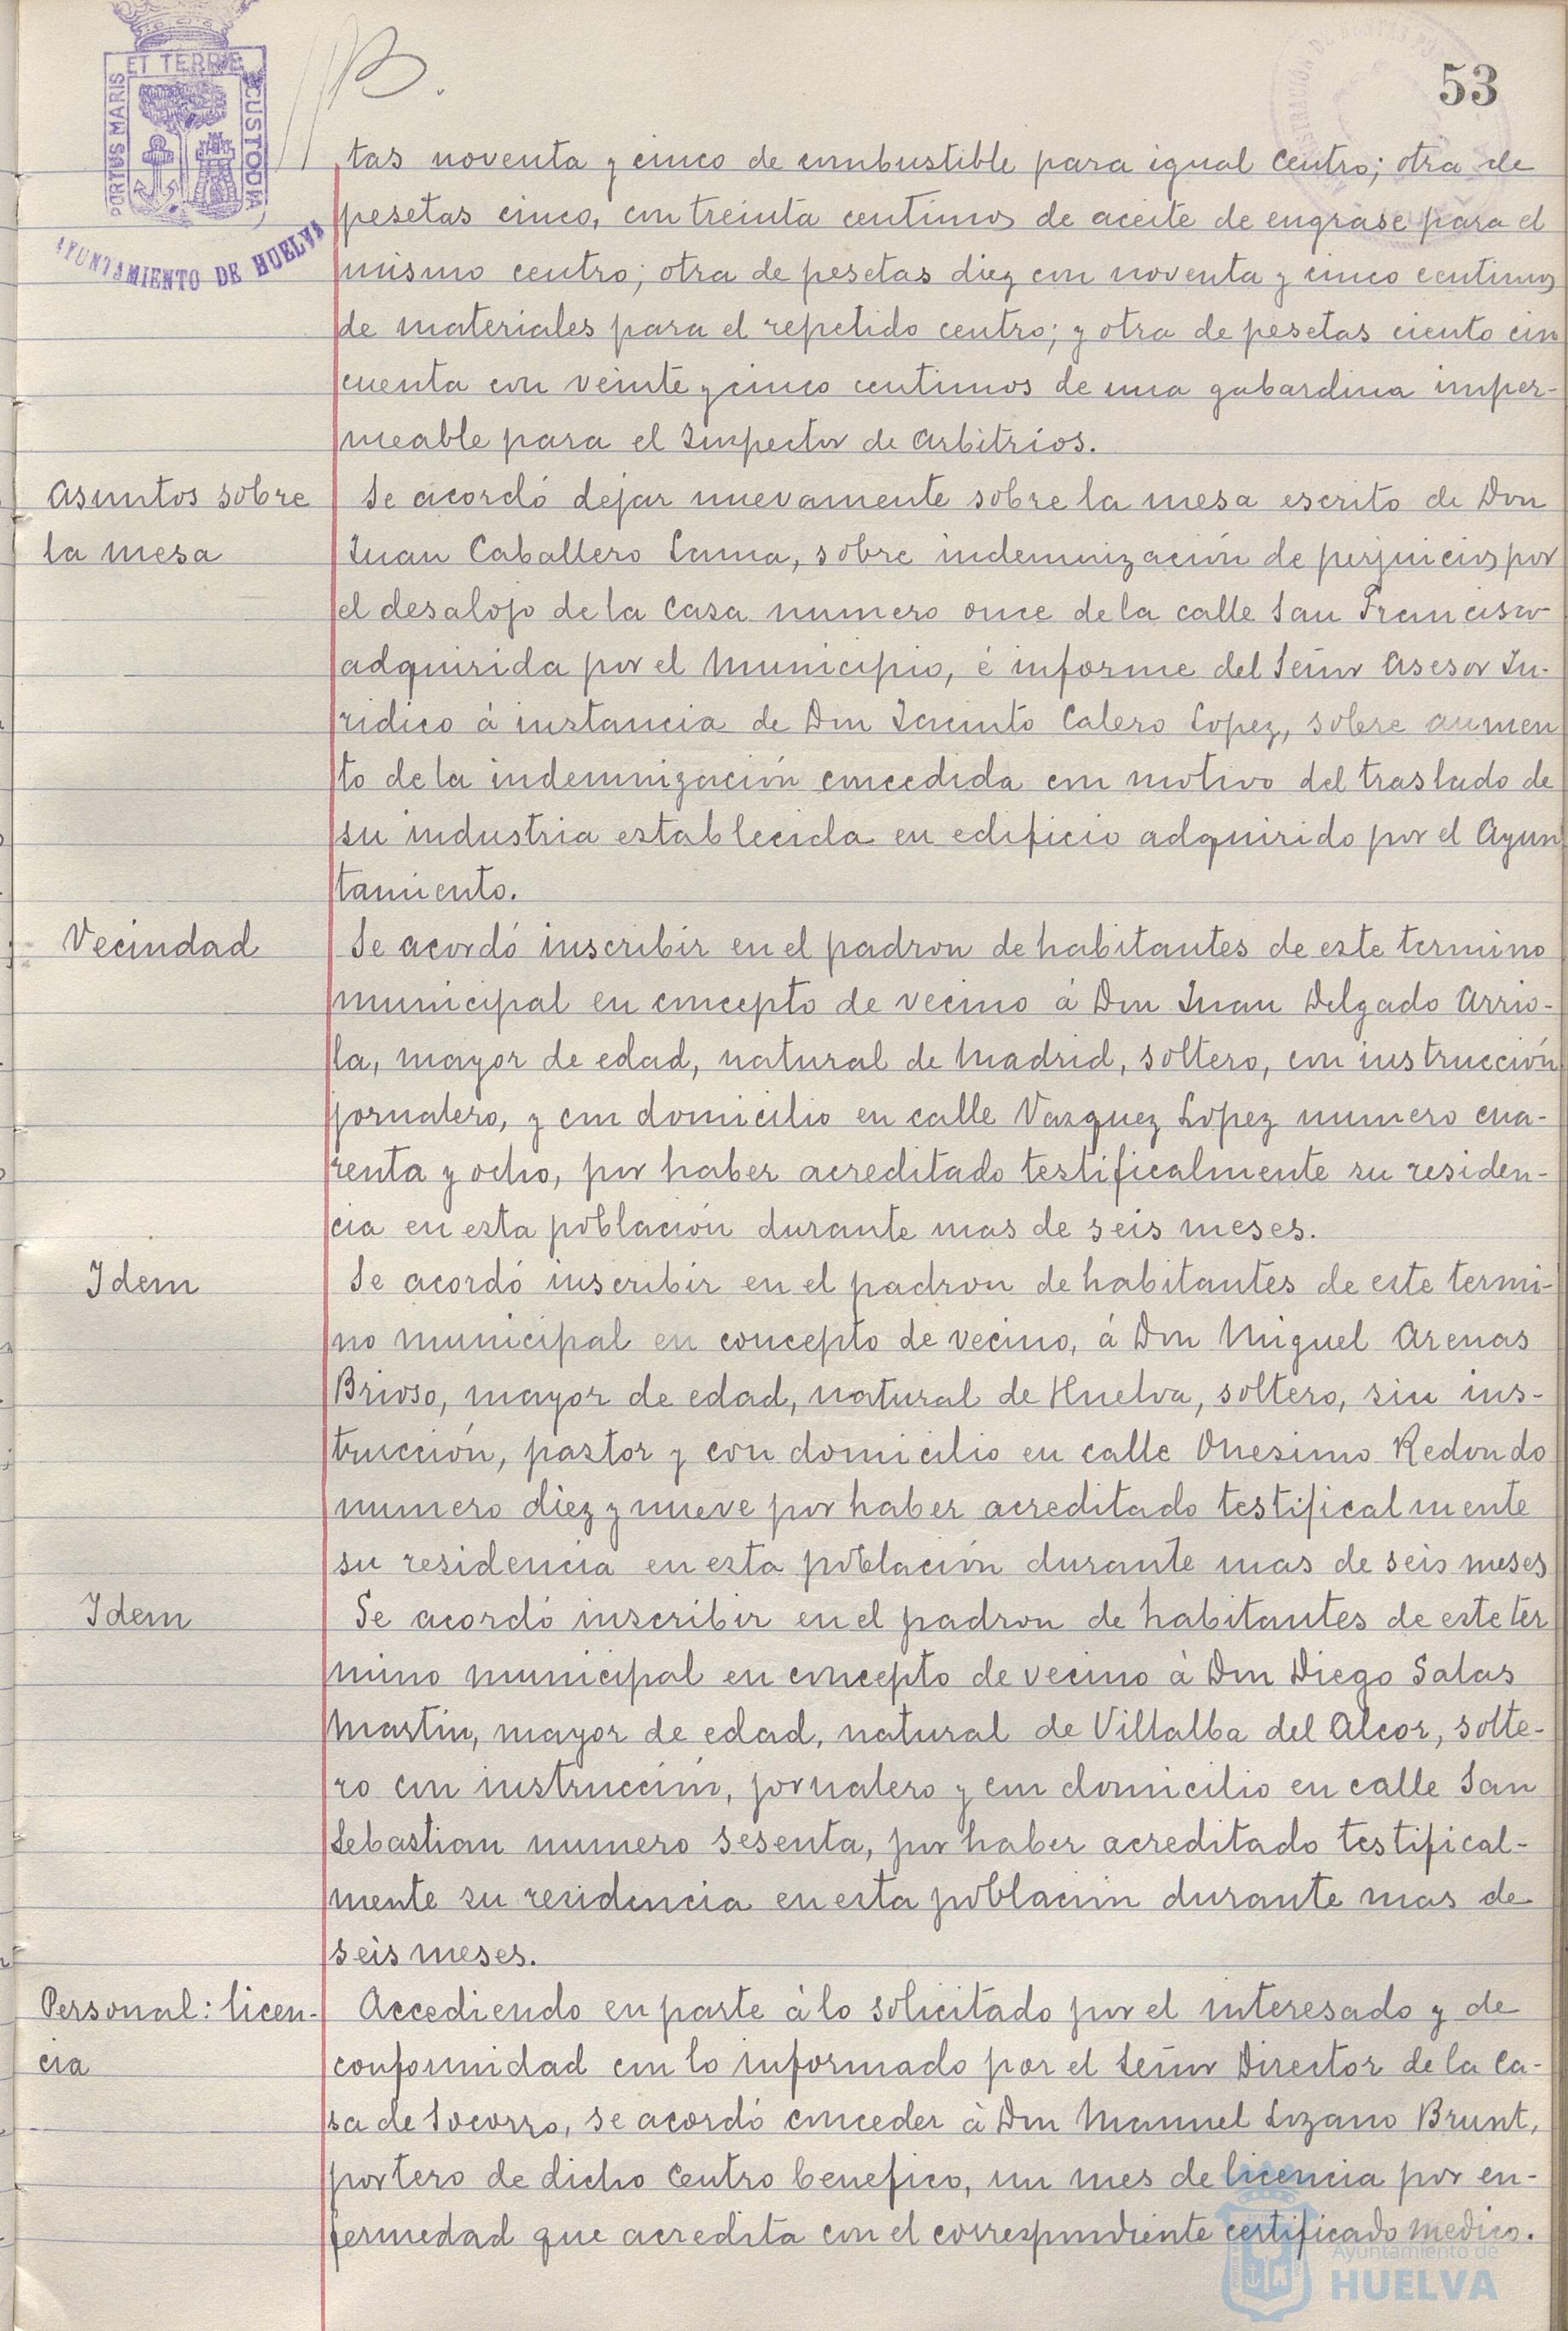 PORTUS MARIS ET TERRE CUSTODIA
AYUNTAMIENTO DE HUELVA
53
tas noventa y cinco de combustible para igual Centro; otra de
pesetas cinco, con treinta centimos de aceite de engrase para el
mismo centro; otra de pesetas diez con noventa y cinco centimos
de materiales para el repetido centro; y otra de pesetas ciento cin
cuenta con veinte y cinco centimos de una gabardina imper-
meable para el Inspector de Arbitrios.
Asuntos sobre
la mesa
Se acordó dejar nuevamente sobre la mesa escrito de Don
Juan Caballero Lama, sobre indemnización de perjuicios por
el desalojo de la casa numero once de la calle San Francisco
adquirida por el Municipio, é informe del Señor Asesor Ju-
ridico á instancia de Don Jacinto Calero Lopez, sobre aumen
to de la indemnización concedida con motivo del traslado de
su industria establecida en edificio adquirido por el Ayun
tamiento.
Vecindad
Se acordó inscribir en el padron de habitantes de este termino
municipal en concepto de vecino á Don Juan Delgado Arrio-
la, mayor de edad, natural de Madrid, soltero, con instrucción
jornalero, y con domicilio en calle Vazquez Lopez numero cua-
renta y ocho, por haber acreditado testificalmente su residen-
cia en esta población durante mas de seis meses.
Idem
Se acordó inscribir en el padron de habitantes de este termi-
no municipal en concepto de vecino, á Don Miguel Arenas
Brioso, mayor de edad, natural de Huelva, soltero, sin ins-
trucción, pastor y con domicilio en calle Onesimo Redondo
numero diez y nueve por haber acreditado testificalmente
su residencia en esta población durante mas de seis meses
Idem
Se acordó inscribir en el padron de habitantes de este ter
mino municipal en concepto de vecino á Don Diego Salas
Martín, mayor de edad, natural de Villalba del Alcor, solte-
ro con instrucción, jornalero y con domicilio en calle San
Sebastian numero sesenta, por haber acreditado testifical-
mente su residencia en esta población durante mas de
seis meses.
Personal: licen-
cia
Accediendo en parte á lo solicitado por el interesado y de
conformidad con lo informado por el Señor Director de la Ca-
sa de Socorro, se acordó conceder á Don Manuel Lozano Brunt,
portero de dicho Centro benefico, un mes de licencia por en-
fermedad que acredita con el correspondiente certificado medico.
Ayuntamiento de
HUELVA